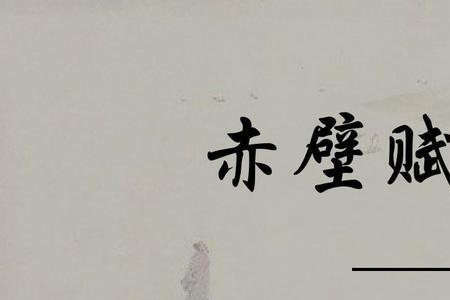 赤壁赋